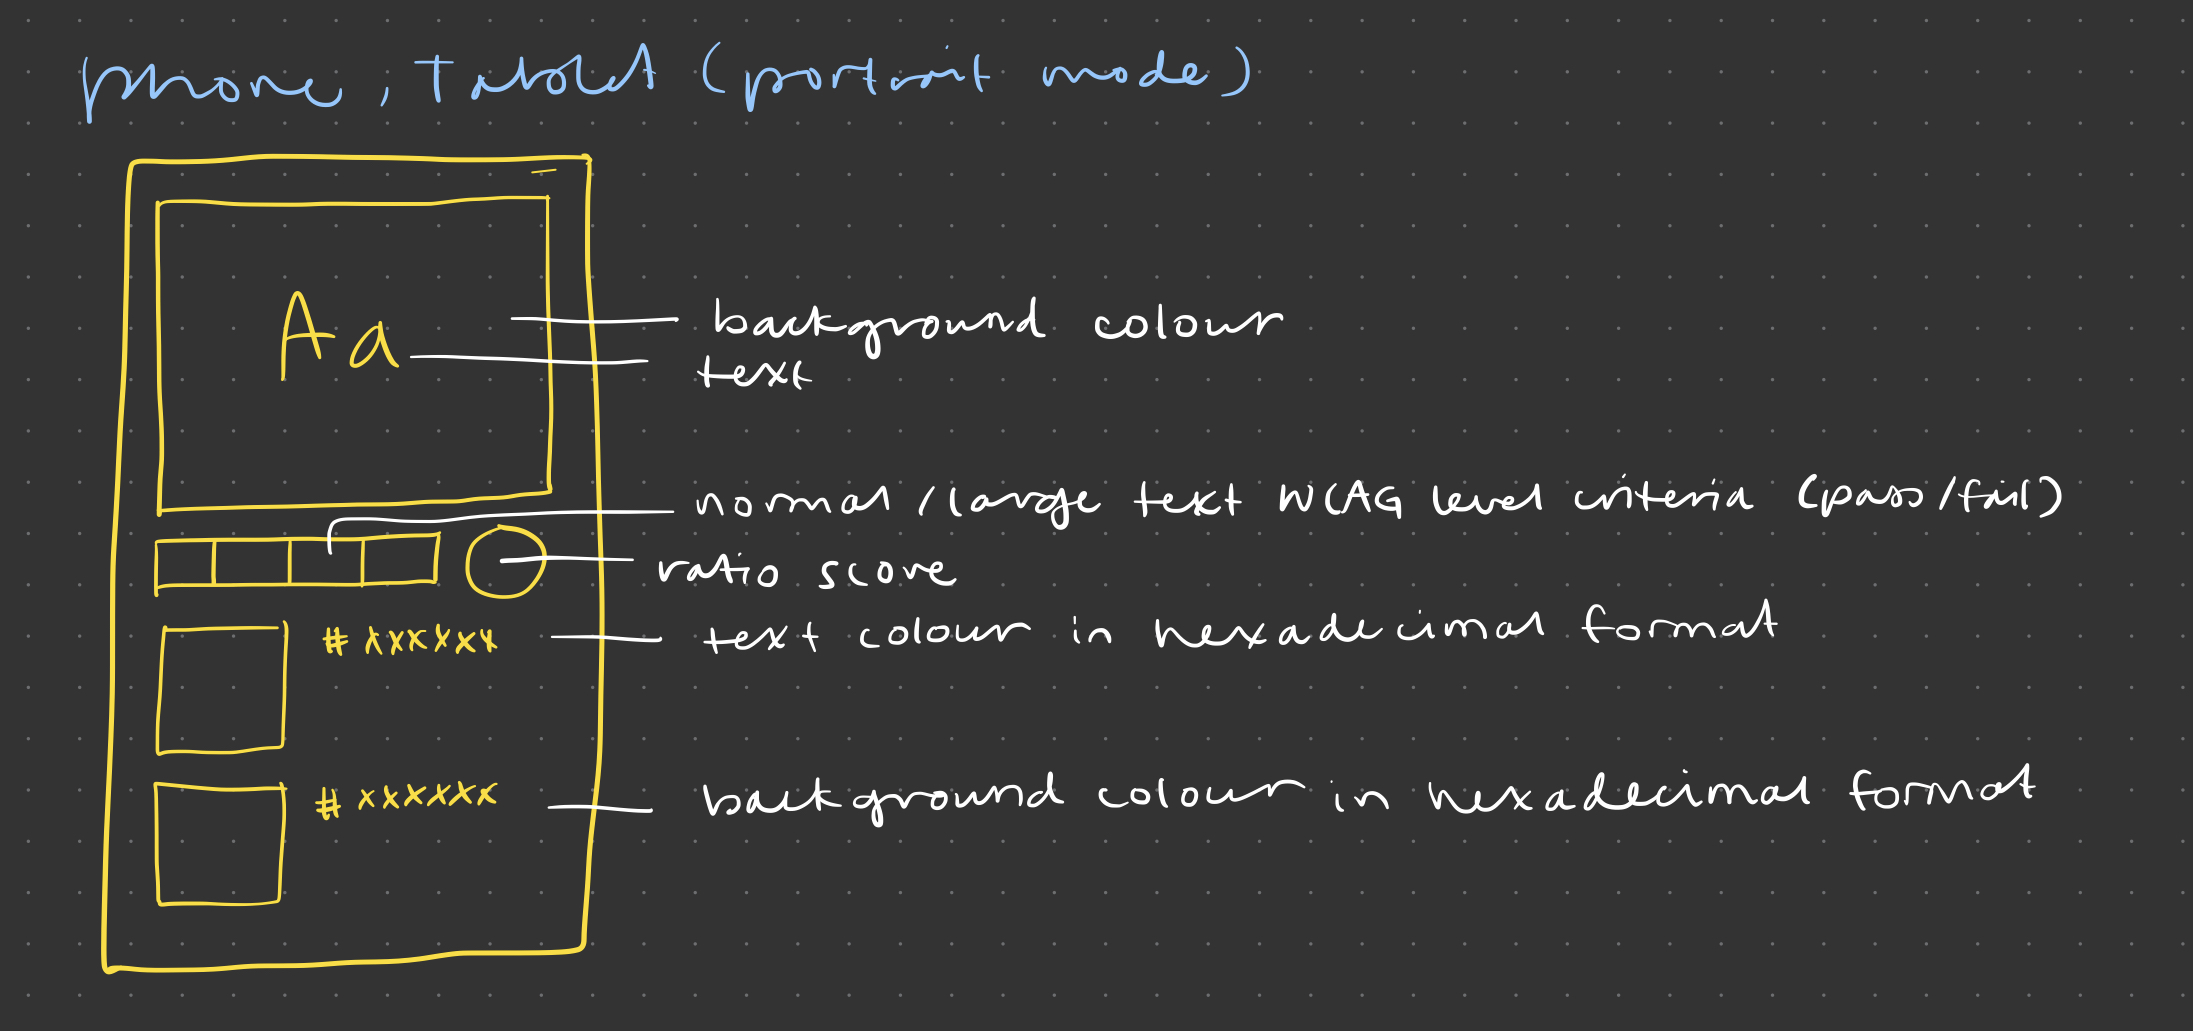 phone, Tablet (portrait mode)
Aa
background colour
text
normal/large text WCAG level criteria (pass/fail)
ratio score
#xxxxxx
text colour in hexadecimal format
#xxxxxx
background colour in hexadecimal format